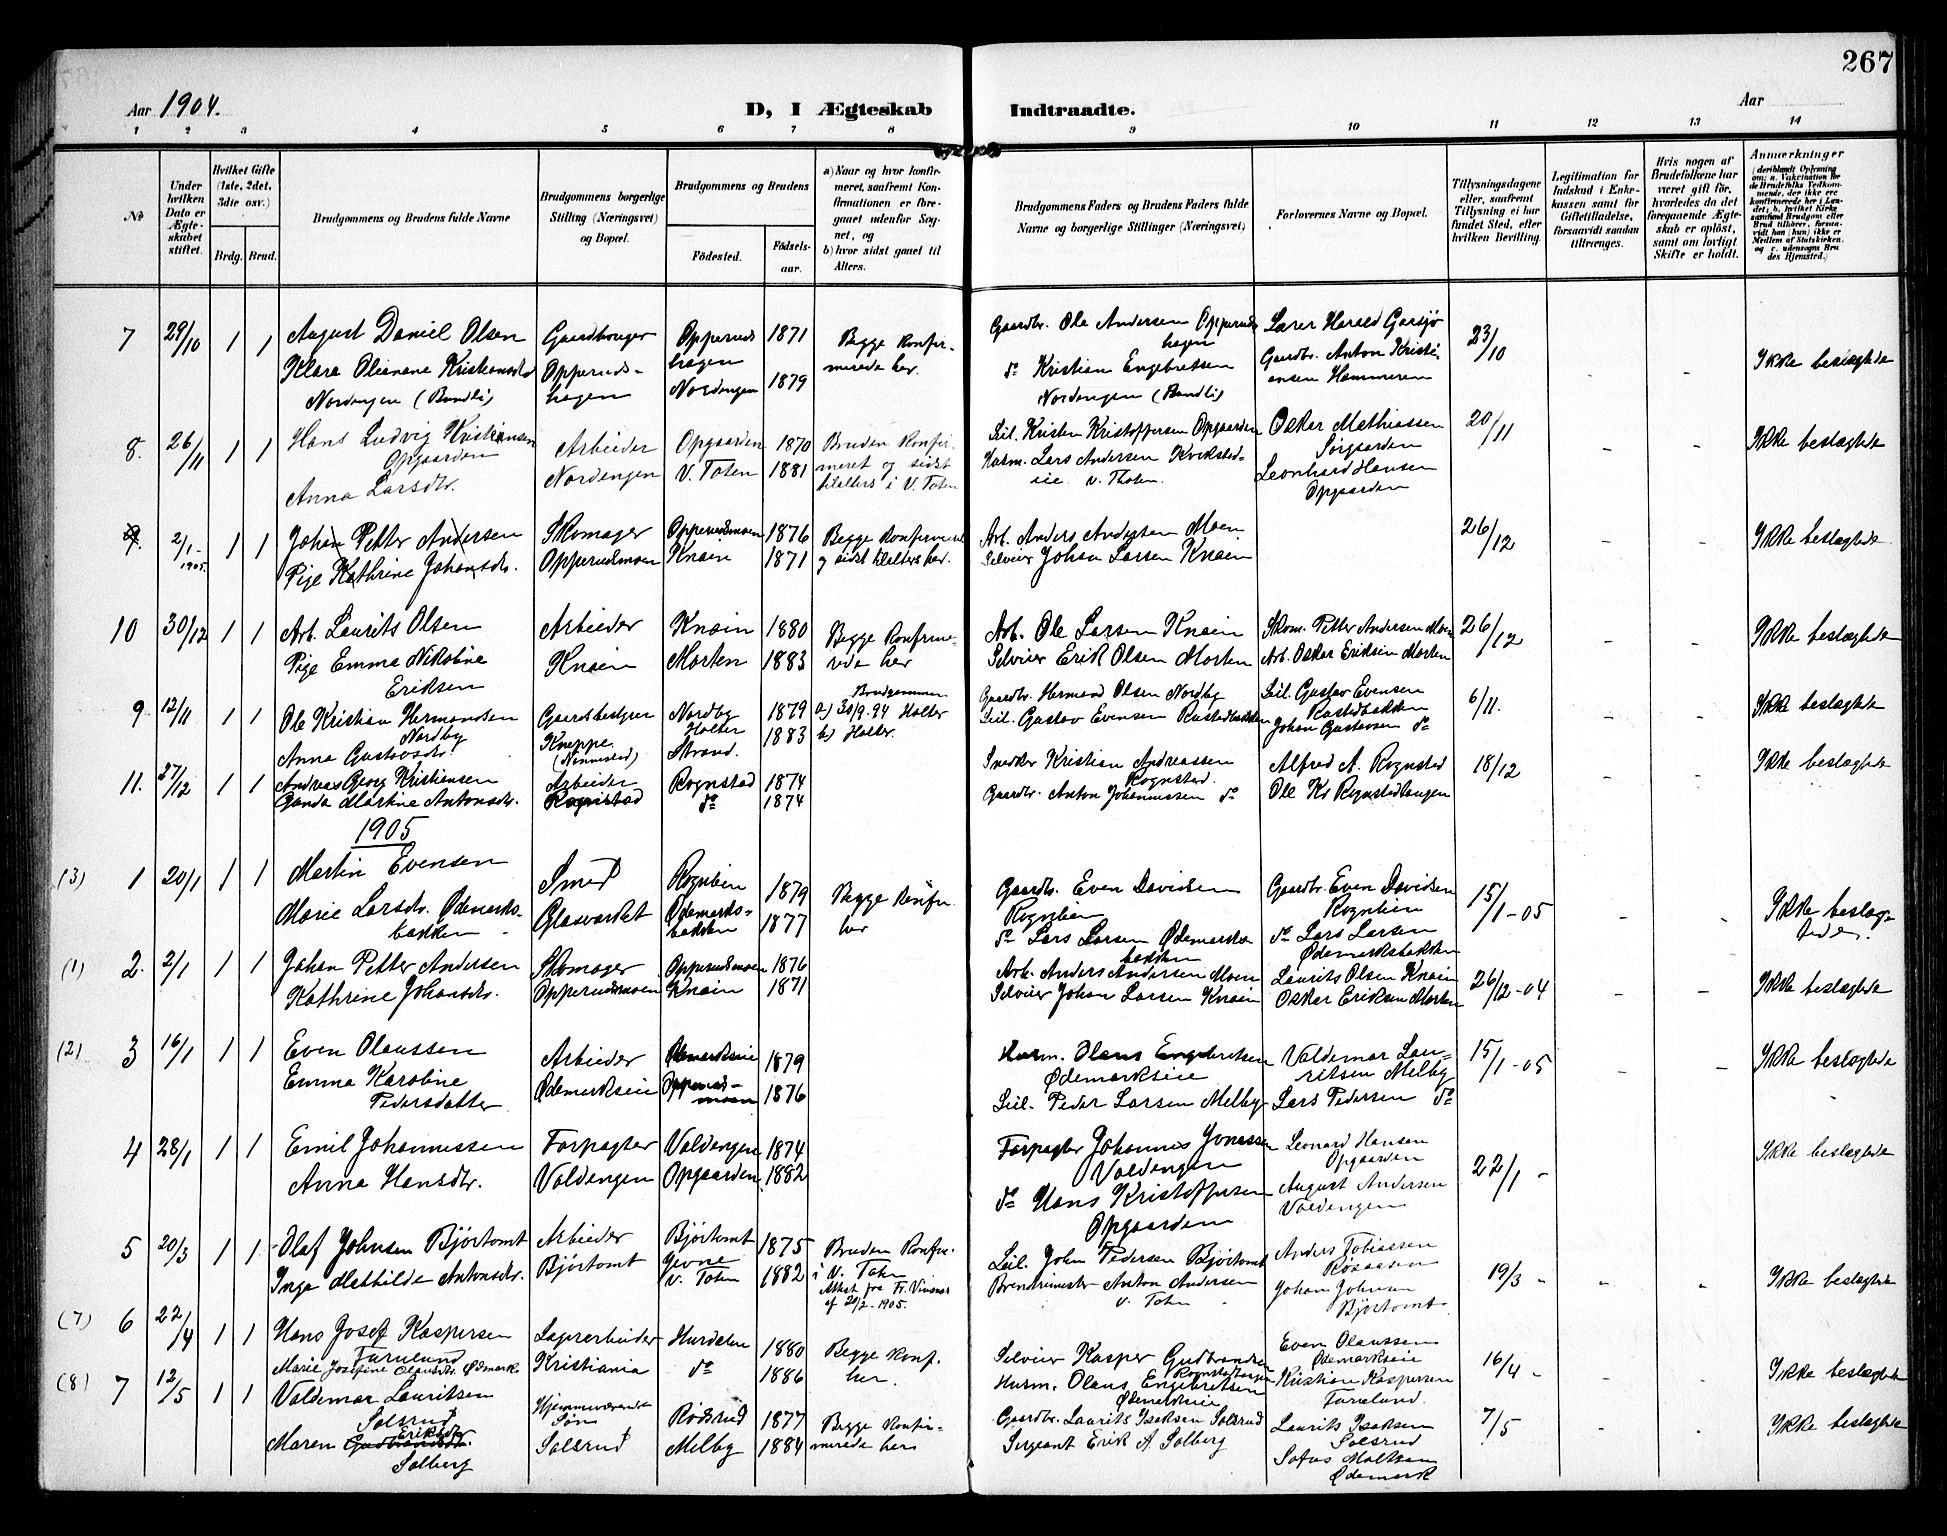 267
Aar 1904.
D, I Ægteskab Indtraadte.
Aar
1 2 3 4 5 6 7 8 9 10 11 12 13 14
No
Under hvilken Dato er Ægteskabet stiftet.
Hvilket Gifte (1ste, 2det, 3dte osv.)
Brdg. Brud.
Brudgommens og Brudens fulde Navne
Brudgommens borgerlige Stilling (Næringsvei) og Bopæl.
Brudgommens og Brudens
Fødested.
Fødselsaar.
a) Naar og hvor konfirmeret, saafremt Konfirmationen er foregaaet udenfor Sognet, og
b) hvor sidst gaaet til Alters.
Brudgommens Faders og Brudens Faders fulde Navne og borgerlige Stillinger (Næringsvei)
Forlovernes Navne og Bopæl.
Tillysningsdagene eller, saafremt Tillysning ei har fundet Sted, efter hvilken Bevilling.
Legitimation for Indskud i Enkekassen samt for Giftetilladelse, forsaavidt saadan tiltrænges.
Hvis nogen af Brudefolkene har været gift før, hvorledes da det foregaaende Ægteskab er opløst, samt om lovligt Skifte er holdt.
Anmærkninger
(deriblandt Oplysning om: a. Vakcination for de Brudefolks Vedkommende, der ikke ere konfirmerede her i Landet; b. hvilket Kirkesamfund Brudgom eller Brud tilhører, forsaavidt han (hun) ikke er Medlem af Statskirken, og c. udensogns Brudes Hjemsted.)
7 29/10 1 1 August Daniel Olsen Gaardbruger Opperuds 1871 Begge konfir- Gaardbr. Ole Andersen Opperuds Lærer Harald Garsjø 23/10 - - Ikke beslægtede
hagen
Klara Oleanane Kristiansdtr Opperuds- hagen merede her. dº Kristian Engebretsen Gaardbr. Anton Kristi-
Nordengen (Bundli) hagen Nordengen 1879 Nordengen (Bundli) ansen Hammeren
8. 26/11 1 1 Hans Ludvig Kristiansen Arbeider Opgaarden 1870 Bruden konfir- Leil. Kristen Kristoffersen Opgaarden Oskar Mathiassen 20/11 - - Ikke beslægtede
Opgaarden meret og sidst Husm. Lars Andersen Kvikstad- Sørgaarden
Anna Larsdtr. Nordengen V. Toten 1881 tilalters i V. Toten eie V. Thoten. Leonhard Hansen
Opgaarden
9. 2/1-1905. 1 1 Johan Petter Andersen Skomager Opperudsmoen 1876 Begge konfirmeret Arb. Anders Andersen Moen 26/12 - - Ikke beslægtede
Pige Kathrine Johansdtr. Opperudsmoen Knain 1871 og sidst tilalters her. Selveier Johan Larsen Knain
10 30/12 1 1 Arb. Laurits Olsen Arbeider Knain 1880 Begge konfirme- Arb. Ole Larsen Knain Skom. Petter Andersen Moen 26/12 - - Ikke beslægtede
Pige Emma Nikoline Knain Morten 1883 rede her Selveier Erik Olsen Morten Arb. Oskar Eriksen Morten
Eriksen
9 12/11 1 1 Ole Kristian Hermansen Gaardsbestyrer Nordby 1879 Brudgommen a) 30/9-94 Holter Gaardbr. Hermand Olsen Nordby Leil. Gustav Evensen 6/11. - - Ikke beslægtede
Nordby Kneppe Holter b) Holter. Leil. Gustav Evensen Rustadbakken Rustadbakken
Anna Gustavsdtr. (Nannestad) Strand. 1883 Johan Gustavsen dº
11. 27/12 1 1 Andreas Georg Kristiansen Arbeider Rognstad 1874 Snedker Kristian Andreassen Alfred A. Rognstad 18/12 Ikke beslægtede
Rognstad.
Ganda Martine Antonsdtr. Rognstad dº 1874 Gaardbr. Anton Johannessen dº Ole Kr Rognstadhaugen
1905
(3) 1 20/1 1 1 Martin Evensen Smed Rognlien 1879 Begge konfir. Gaardbr. Even Davidsen Gaardbr. Even Davidsen 15/1-05 - - Ikke beslæg-
Rognlien Rognlien tede.
Marie Larsdtr. Ødemarks- Glasværket Ødemarks- 1877 her dº Lars Larsen Ødemarks- dº Lars Larsen
bakken bakken bakken Ødemarksbakken
(1) 2. 2/1 1 1 Johan Petter Andersen Skomager Opperudsmoen 1876 Arb. Anders Andersen Moen Laurits Olsen Knain 26/12-04 - - Ikke beslægtede
Kathrine Johansdtr. Opperudsmoen Knain 1871 Selveier Johan Larsen Knain Oskar Eriksen Morten
(2) 3 16/1 1 1 Even Olaussen Arbeider Ødemarkseie 1879 Husm. Olaus Engebretsen Valdemar Lau- 15/1-05 - - Ikke beslægtede
Emma Karoline Ødemarkseie Opperuds- 1876 Ødemarkseie ritsen Melby
Pedersdatter moen Leil. Peder Larsen Melby Lars Pedersen dº
4 28/1 1 1 Emil Johannessen Forpagter Valdengen 1874 Forpagter Johannes Jonassen Leonard Hansen 22/1 - Ikke beslægtede
Valdengen Opgaarden
Anna Hansdtr. Valdengen Opgaarden 1882 dº Hans Kristoffersen August Andersen
Opgaarden Valdengen
5 20/3 1 1 Olaf Johnsen Bjørtomt Arbeider Bjørtomt 1875 Bruden konfir. Leil. John Pedersen Bjørtomt Anders Tobiassen 19/3 - - - Ikke beslægtede
Inga Mathilde Antonsdtr. Bjørtomt V. Toten 1882 i V. Toten Anton Andersen Johan Johnsen
Attest fra V. Toten Bjørtomt
af 20/2-1905.
(7) 6 22/4 1 1 Hans Josef Kaspersen Lagerarbeider Hurdalen 1880 Begge konf. Selveier Kasper Gudbrandsen Even Olaussen 16/4 - Ikke beslægtede
Furulund Ødemarkseie
Marie Josefine Olausdtr. Ødemark. Kristiania dº 1886 her. Husm. Olaus Engebretsen Kristian Kaspersen
Ødemarkseie Furulund.
(8) 7 12/5 1 1 Valdemar Lauritsen Hjemmeværende Rødsrud 1877 Begge konfir- Gaardbr. Laurits Isaksen Solsrud Laurits Isaksen 7/5 - Ikke beslægtede
Solsrud Søn Solsrud
Maren Gudbrandsdtr. Eriksdtr Solsrud Melby 1884 merede her Sergeant Erik A. Solberg Sofus
Solberg Ødemark